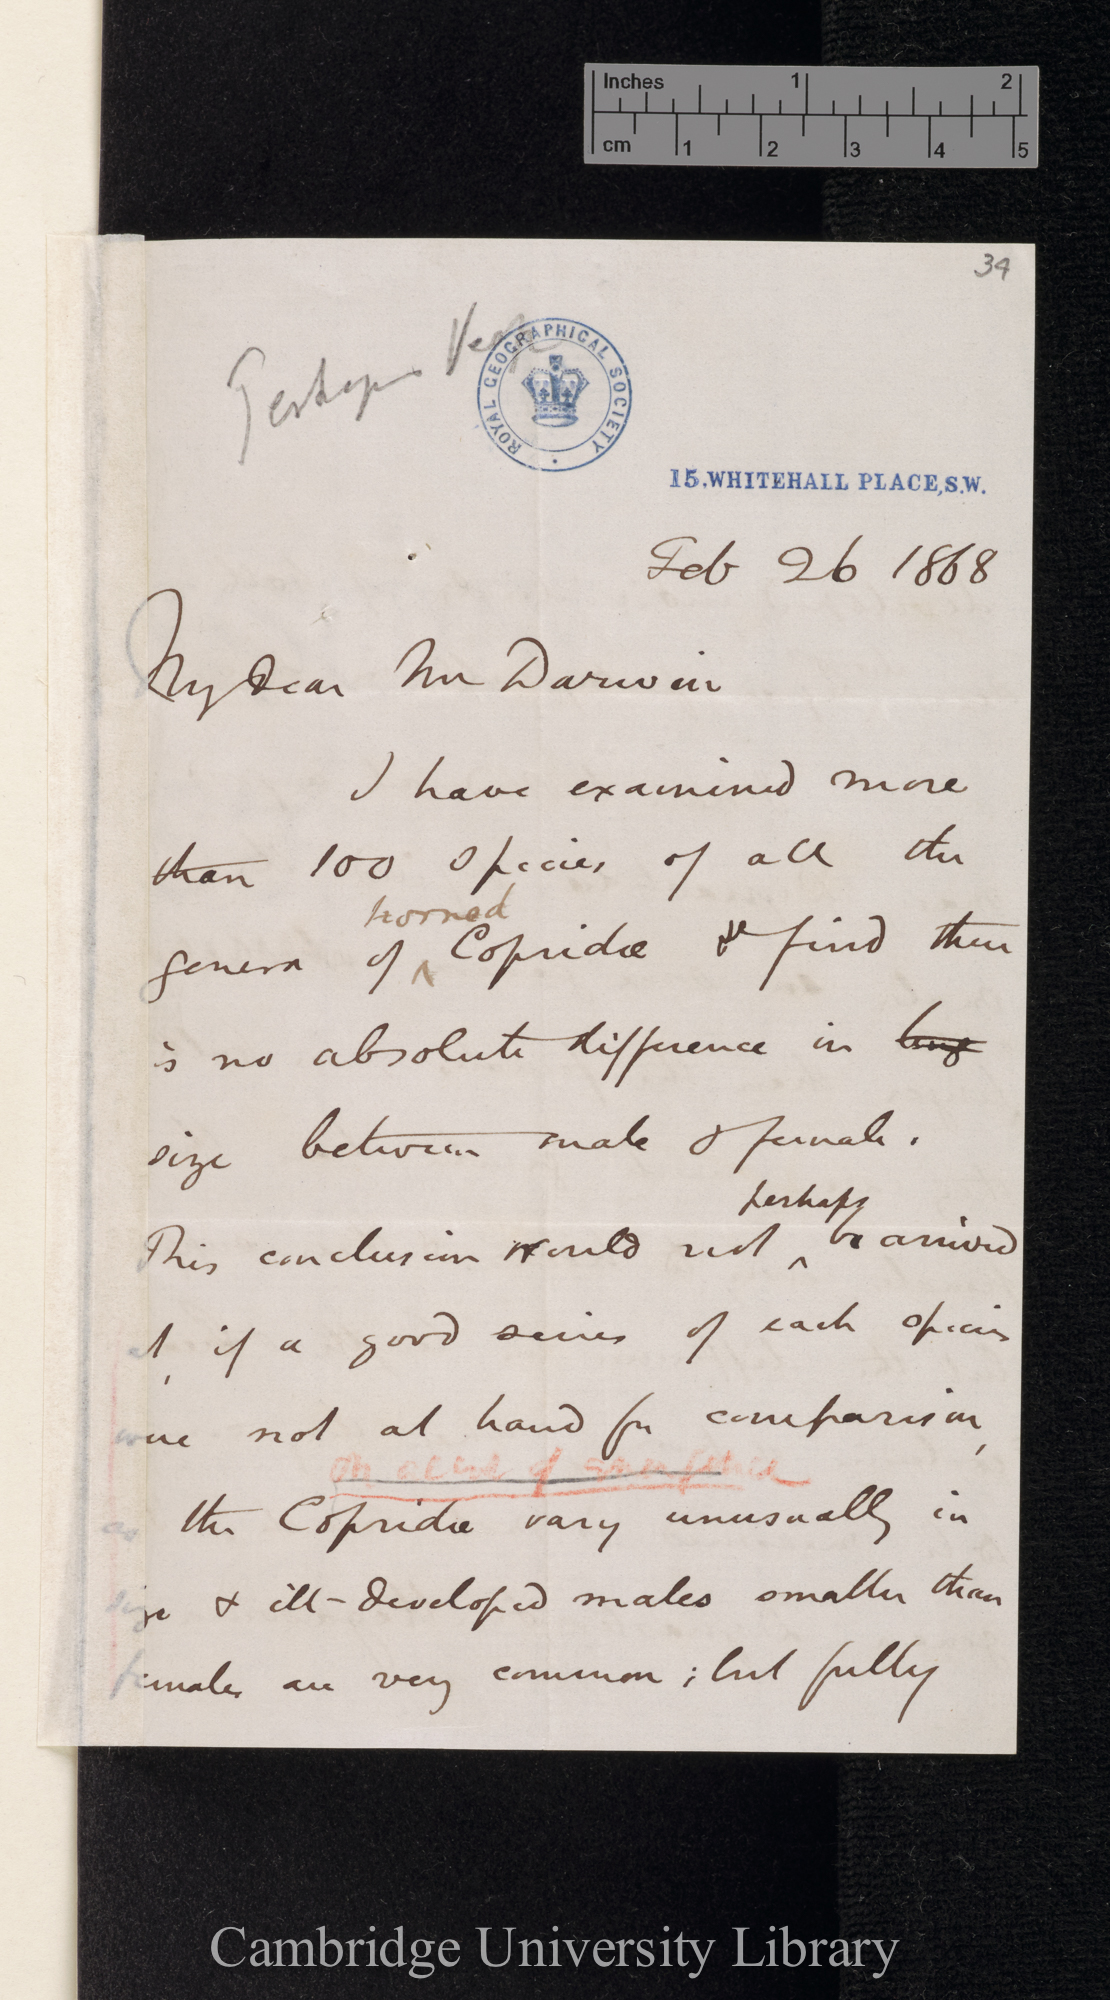 Inches 1 2
cm 1 2 3 4 5
34
Perhaps
ROYAL GEOGRAPHICAL SOCIETY
15.WHITEHALL PLACE,S.W.
Feb 26 1868
My dear Mr Darwin
I have examined more
than 100 species of all the
horned
genera of ^ Copridæ & find there
is no absolute difference in
size between male & female.
perhaps
This conclusion would not ^ be arrived
at, if a good series of each species
were not at hand for comparison,
as the Copridæ vary unusually in
size & ill-developed males smaller than
females are very common; but fully
Cambridge University Library